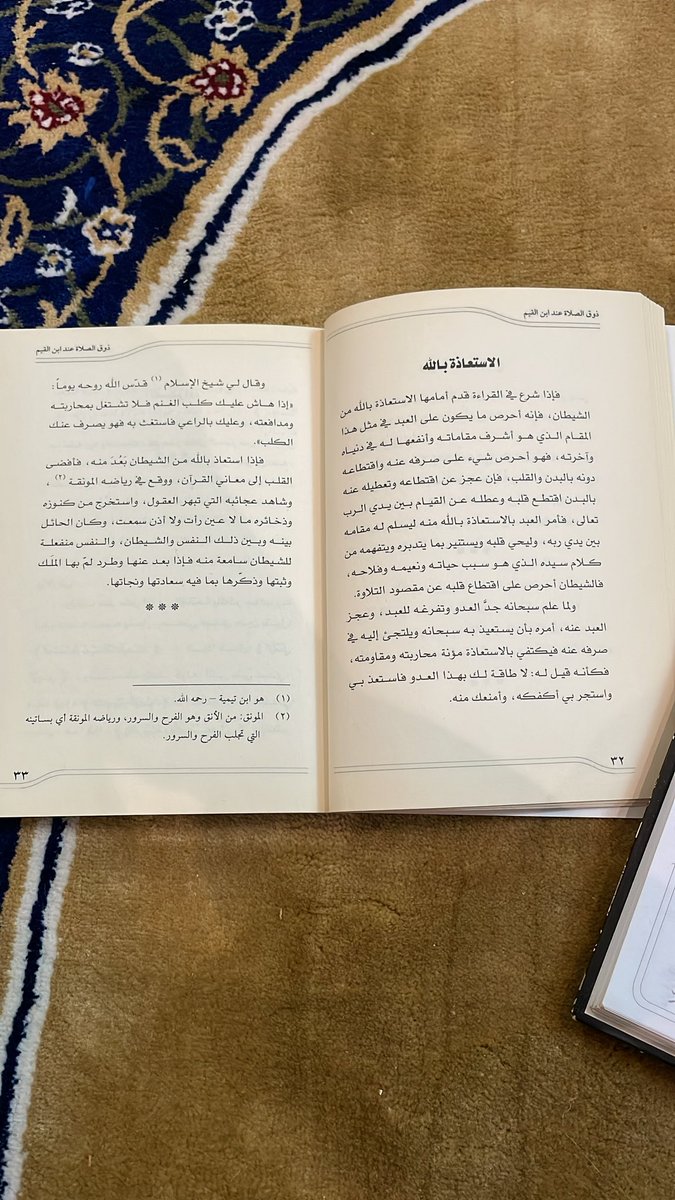 ذوق الصلاة عند ابن القيم
الاستعاذة بالله
فإذا شرع في القراءة قدم أمامها الاستعاذة بالله من
الشيطان، فإنه أحرص ما يكون على العبد في مثل هذا
المقام الذي هو أشرف مقاماته وأنفعها له في دنياه
وآخرته، فهو أحرص شيء على صرفه عنه واقتطاعه
دونه بالبدن والقلب، فإن عجز عن اقتطاعه وتعطيله عنه
بالبدن اقتطع قلبه وعطله عن القيام بين يدي الرب
تعالى، فأمر العبد بالاستعاذة بالله منه ليسلم له مقامه
بين يدي ربه، وليحي قلبه ويستنير بما يتدبره ويتفهمه من
كلام سيده الذي هو سبب حياته ونعيمه وفلاحه،
فالشيطان أحرص على اقتطاع قلبه عن مقصود التلاوة.
ولما علم سبحانه جدَّ العدو وتفرغه للعبد، وعجز
العبد عنه، أمره بأن يستعيذ به سبحانه ويلتجئ إليه في
صرفه عنه فيكتفي بالاستعاذة مؤنة محاربته ومقاومته،
فكأنه قيل له: لا طاقة لك بهذا العدو فاستعذ بي
واستجر بي أكفكه، وأمنعك منه.
٣٢
ذوق الصلاة عند ابن القيم
وقال لي شيخ الإسلام (١) قدّس الله روحه يوماً:
«إذا هاش عليك كلب الغنم فلا تشتغل بمحاربته
ومدافعته، وعليك بالراعي فاستغث به فهو يصرف عنك
الكلب».
فإذا استعاذ بالله من الشيطان بَعُدَ منه، فأفضى
القلب إلى معاني القرآن، ووقع في رياضه المونقة (٢)،
وشاهد عجائبه التي تبهر العقول، واستخرج من كنوزه
وذخائره ما لا عين رأت ولا أذن سمعت، وكان الحائل
بينه وبين ذلك النفس والشيطان، والنفس منفعلة
للشيطان سامعة منه فإذا بعد عنها وطرد لمّ بها الملَك
وثبتها وذكّرها بما فيه سعادتها ونجاتها.
(١) هو ابن تيمية – رحمه الله.
(٢) المونق: من الأنق وهو الفرح والسرور، ورياضه المونقة أي بساتينه
التي تجلب الفرح والسرور.
٣٣